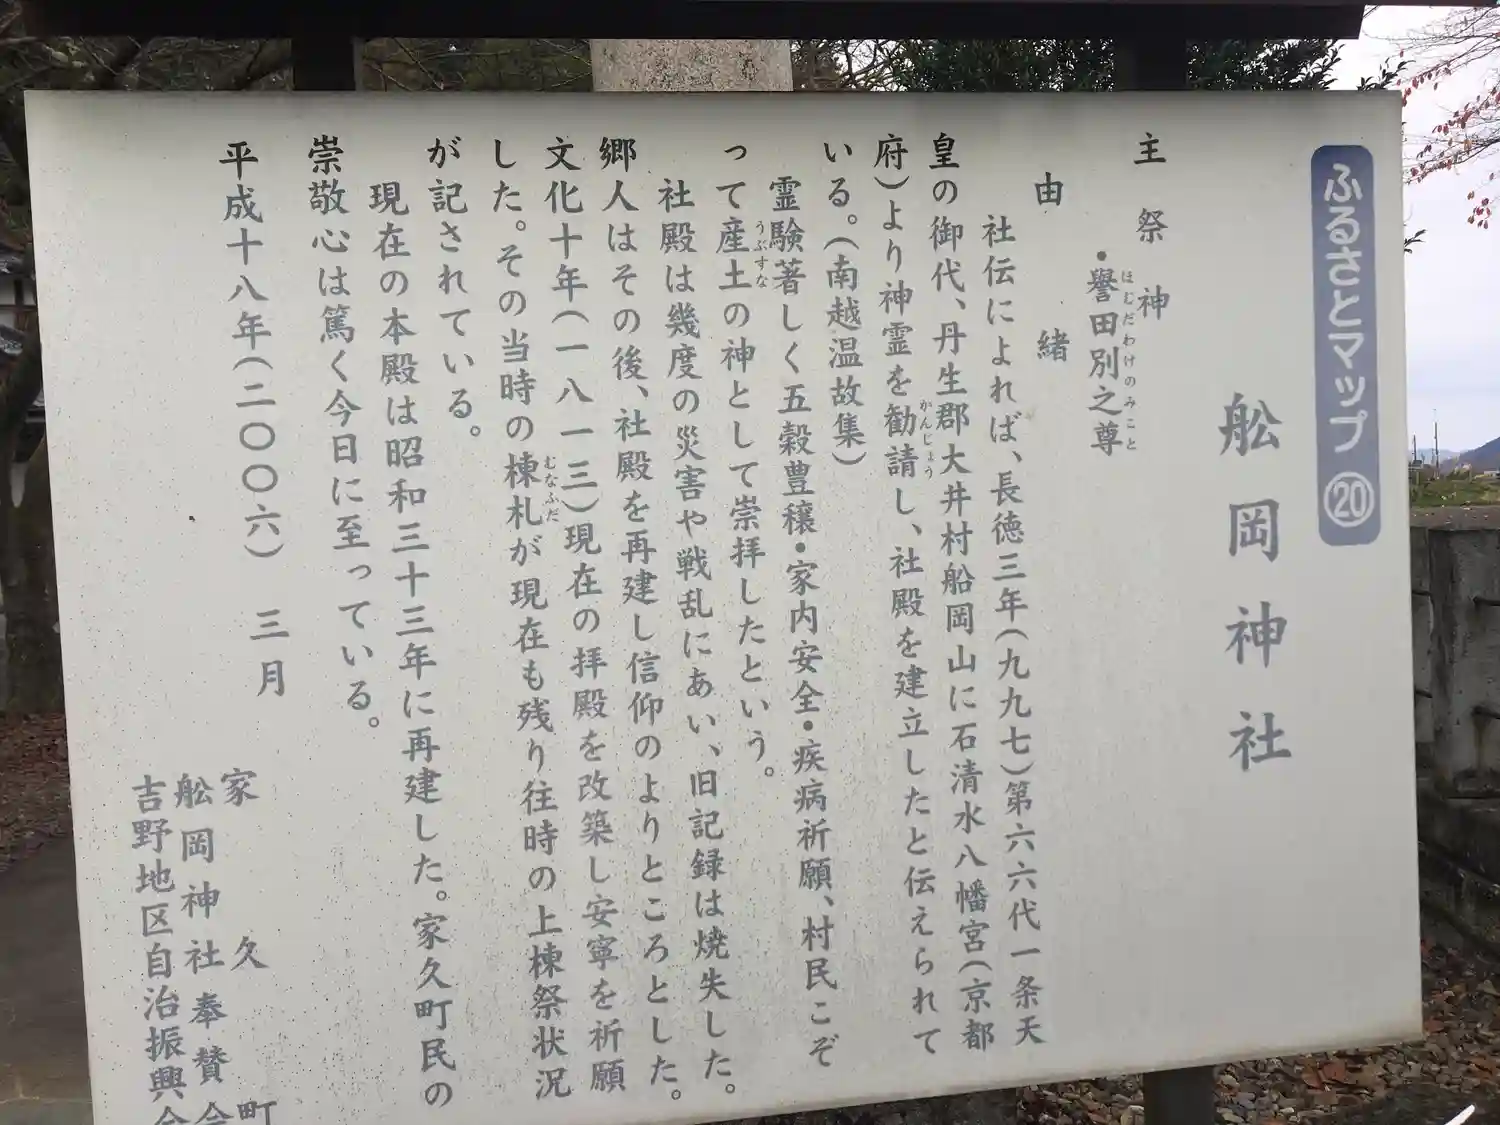 ふるさとマップ⑳
舩岡神社
主祭神
・譽田別之尊
ほむだわけのみこと
由緒
社伝によれば、長徳三年(九九七)第六六代一条天
皇の御代、丹生郡大井村船岡山に石清水八幡宮(京都
府)より神霊を勧請し、社殿を建立したと伝えられて
かんじょう
いる。(南越温故集)
霊験著しく五穀豊穣・家内安全・疾病祈願、村民こぞ
って産土の神として崇拝したという。
うぶすな
社殿は幾度の災害や戦乱にあい、旧記録は焼失した。
郷人はその後、社殿を再建し信仰のよりところとした。
文化十年(一八一三)現在の拝殿を改築し安寧を祈願
した。その当時の棟札が現在も残り往時の上棟祭状況
むなふだ
が記されている。
現在の本殿は昭和三十三年に再建した。家久町民の
崇敬心は篤く今日に至っている。
平成十八年(二〇〇六)三月
家久町
舩岡神社奉賛会
吉野地区自治振興会